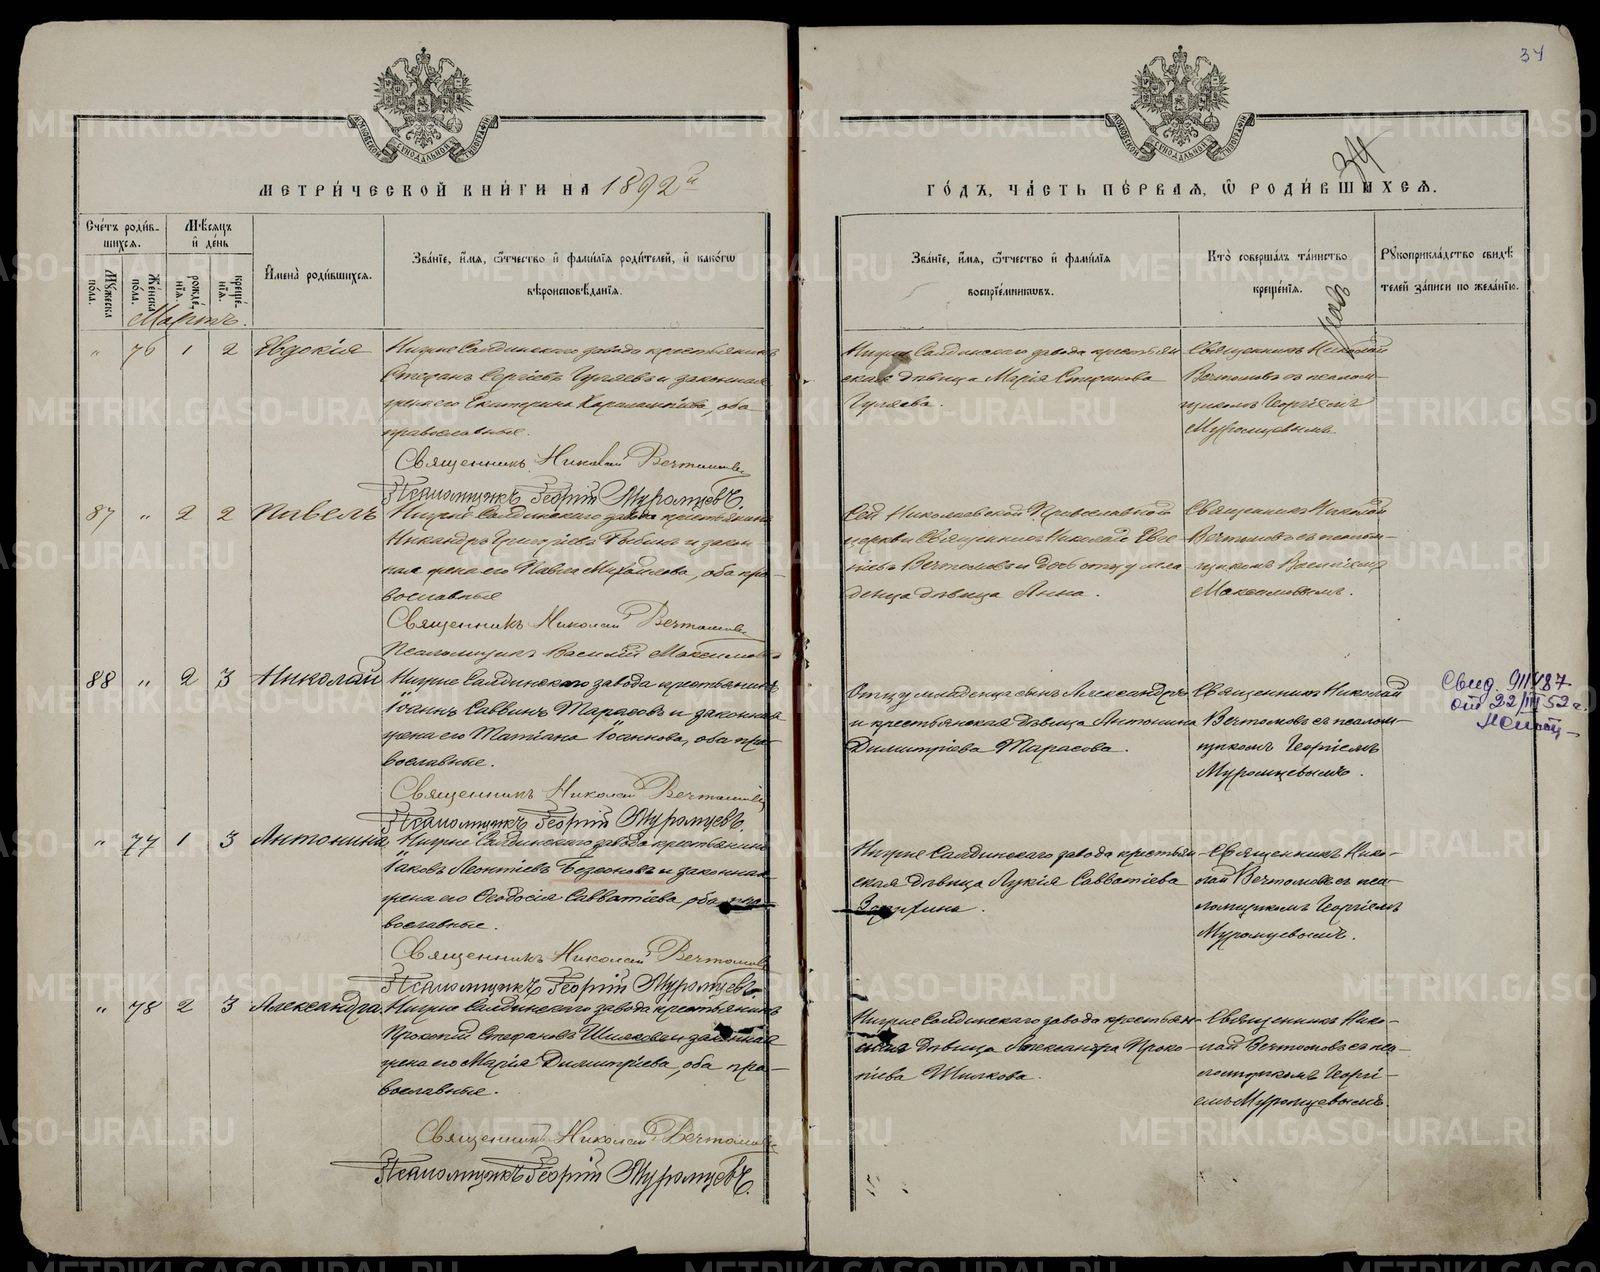 34
34
МЕТРИ́ЧЕСКОЙ КНИ́ГИ НА 1892й
ГО́ДЪ, ЧА́СТЬ ПЕ́РВАЯ, Ѡ РОДИ́ВШИХСЯ.
Сче́тъ роди́вшихся.
Му́жеска по́ла.
Же́нска по́ла.
Мѣ́сяцъ и҆ де́нь
рожде́нїя.
креще́нїя.
И҆мена̀ роди́вшихся.
Зва́нїе, и҆́мя, ѻ҆́тчество и҆ фами́лїя роди́телей, и҆ како́гѡ
вѣроисповѣ́данїя.
Зва́нїе, и҆́мя, ѻ҆́тчество и҆ фами́лїя
воспрїе́мникѡвъ.
Кто̀ соверша́лъ та́инство
креще́нїя.
Рꙋкоприкла́дство свидѣ́
телей за́писи по жела́нїю.
Мартъ.
" 76 1 2 Евдокія
Нижне Салдинскаго завода крестьянинъ
Стефанъ Сергіевъ Гуляевъ и законная
жена его Екатерина Харалампіева, оба
православные.
Священникъ Николай Вечтомовъ
Псаломщикъ Георгій Муромцевъ.
Нижне Салдинскаго завода крестьян
ская дѣвица Марія Стефанова
Гуляева.
Священникъ Николай
Вечтомовъ съ псалом-
щикомъ Георгіемъ
Муромцевымъ
87 " 2 2 Павелъ
Нижне Салдинскаго завода крестьянинъ
Никандръ Григоріевъ и закон-
ная жена его Павла Михайлова, оба пра-
вославные
Священникъ Николай Вечтомовъ
Псаломщикъ Василій Максимовъ
Сей Николаевской Православной
церкви Священникъ Николай
Вечтомовъ и дочь отцу мла
денца дѣвица Анна.
Священникъ Николай
Вечтомовъ съ псалом-
щикомъ Василіемъ
Максимовымъ.
88 " 2 3 Николай
Нижне Салдинскаго завода крестьянинъ
Іоаннъ Саввинъ Тарасовъ и законная
жена его Татіана Іоаннова, оба пра-
вославные.
Священникъ Николай Вечтомовъ
Псаломщикъ Георгій Муромцевъ.
Отцу младенца сынъ Александръ
и крестьянская дѣвица Антонина
Димитріева Тарасова.
Священникъ Николай
Вечтомовъ съ псалом-
щикомъ Георгіемъ
Муромцевымъ.
Свид. 911487
от 22/III 52 г.
" 77 1 3 Антонина
Нижне Салдинскаго завода крестьянинъ
Іаковъ Леонтіевъ Безсоновъ и законная
жена его Ѳеодосія Савватіева, оба пра-
вославные.
Священникъ Николай Вечтомовъ
Псаломщикъ Георгій Муромцевъ.
Нижне Салдинскаго завода крестьян
ская дѣвица Лукія Савватіева
Священникъ Нико-
лай Вечтомовъ съ пса-
ломщикомъ Георгіемъ
Муромцевымъ.
" 78 2 3 Александра
Нижне Салдинскаго завода крестьянинъ
Прокопій Стефановъ Шилковъ и законная
жена его Марія Димитріева, оба пра-
вославные.
Священникъ Николай Вечтомовъ
Псаломщикъ Георгій Муромцевъ.
Нижне Салдинскаго завода крестьян-
ская дѣвица Александра Проко-
піева Шилкова.
Священникъ Нико-
лай Вечтомовъ съ пса-
ломщикомъ Георгі-
емъ Муромцевымъ
METRIKI.GASO-URAL.RU